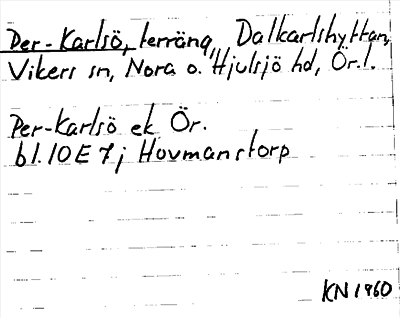 Per-Karlsö, terräng, Dalkarlshyttan,
Vikers sn, Nora o. Hjulsjö hd, Ör.l.
Per-Karlsö ek Ör.
bl. 10E 7j Hovmanstorp
KN 1960